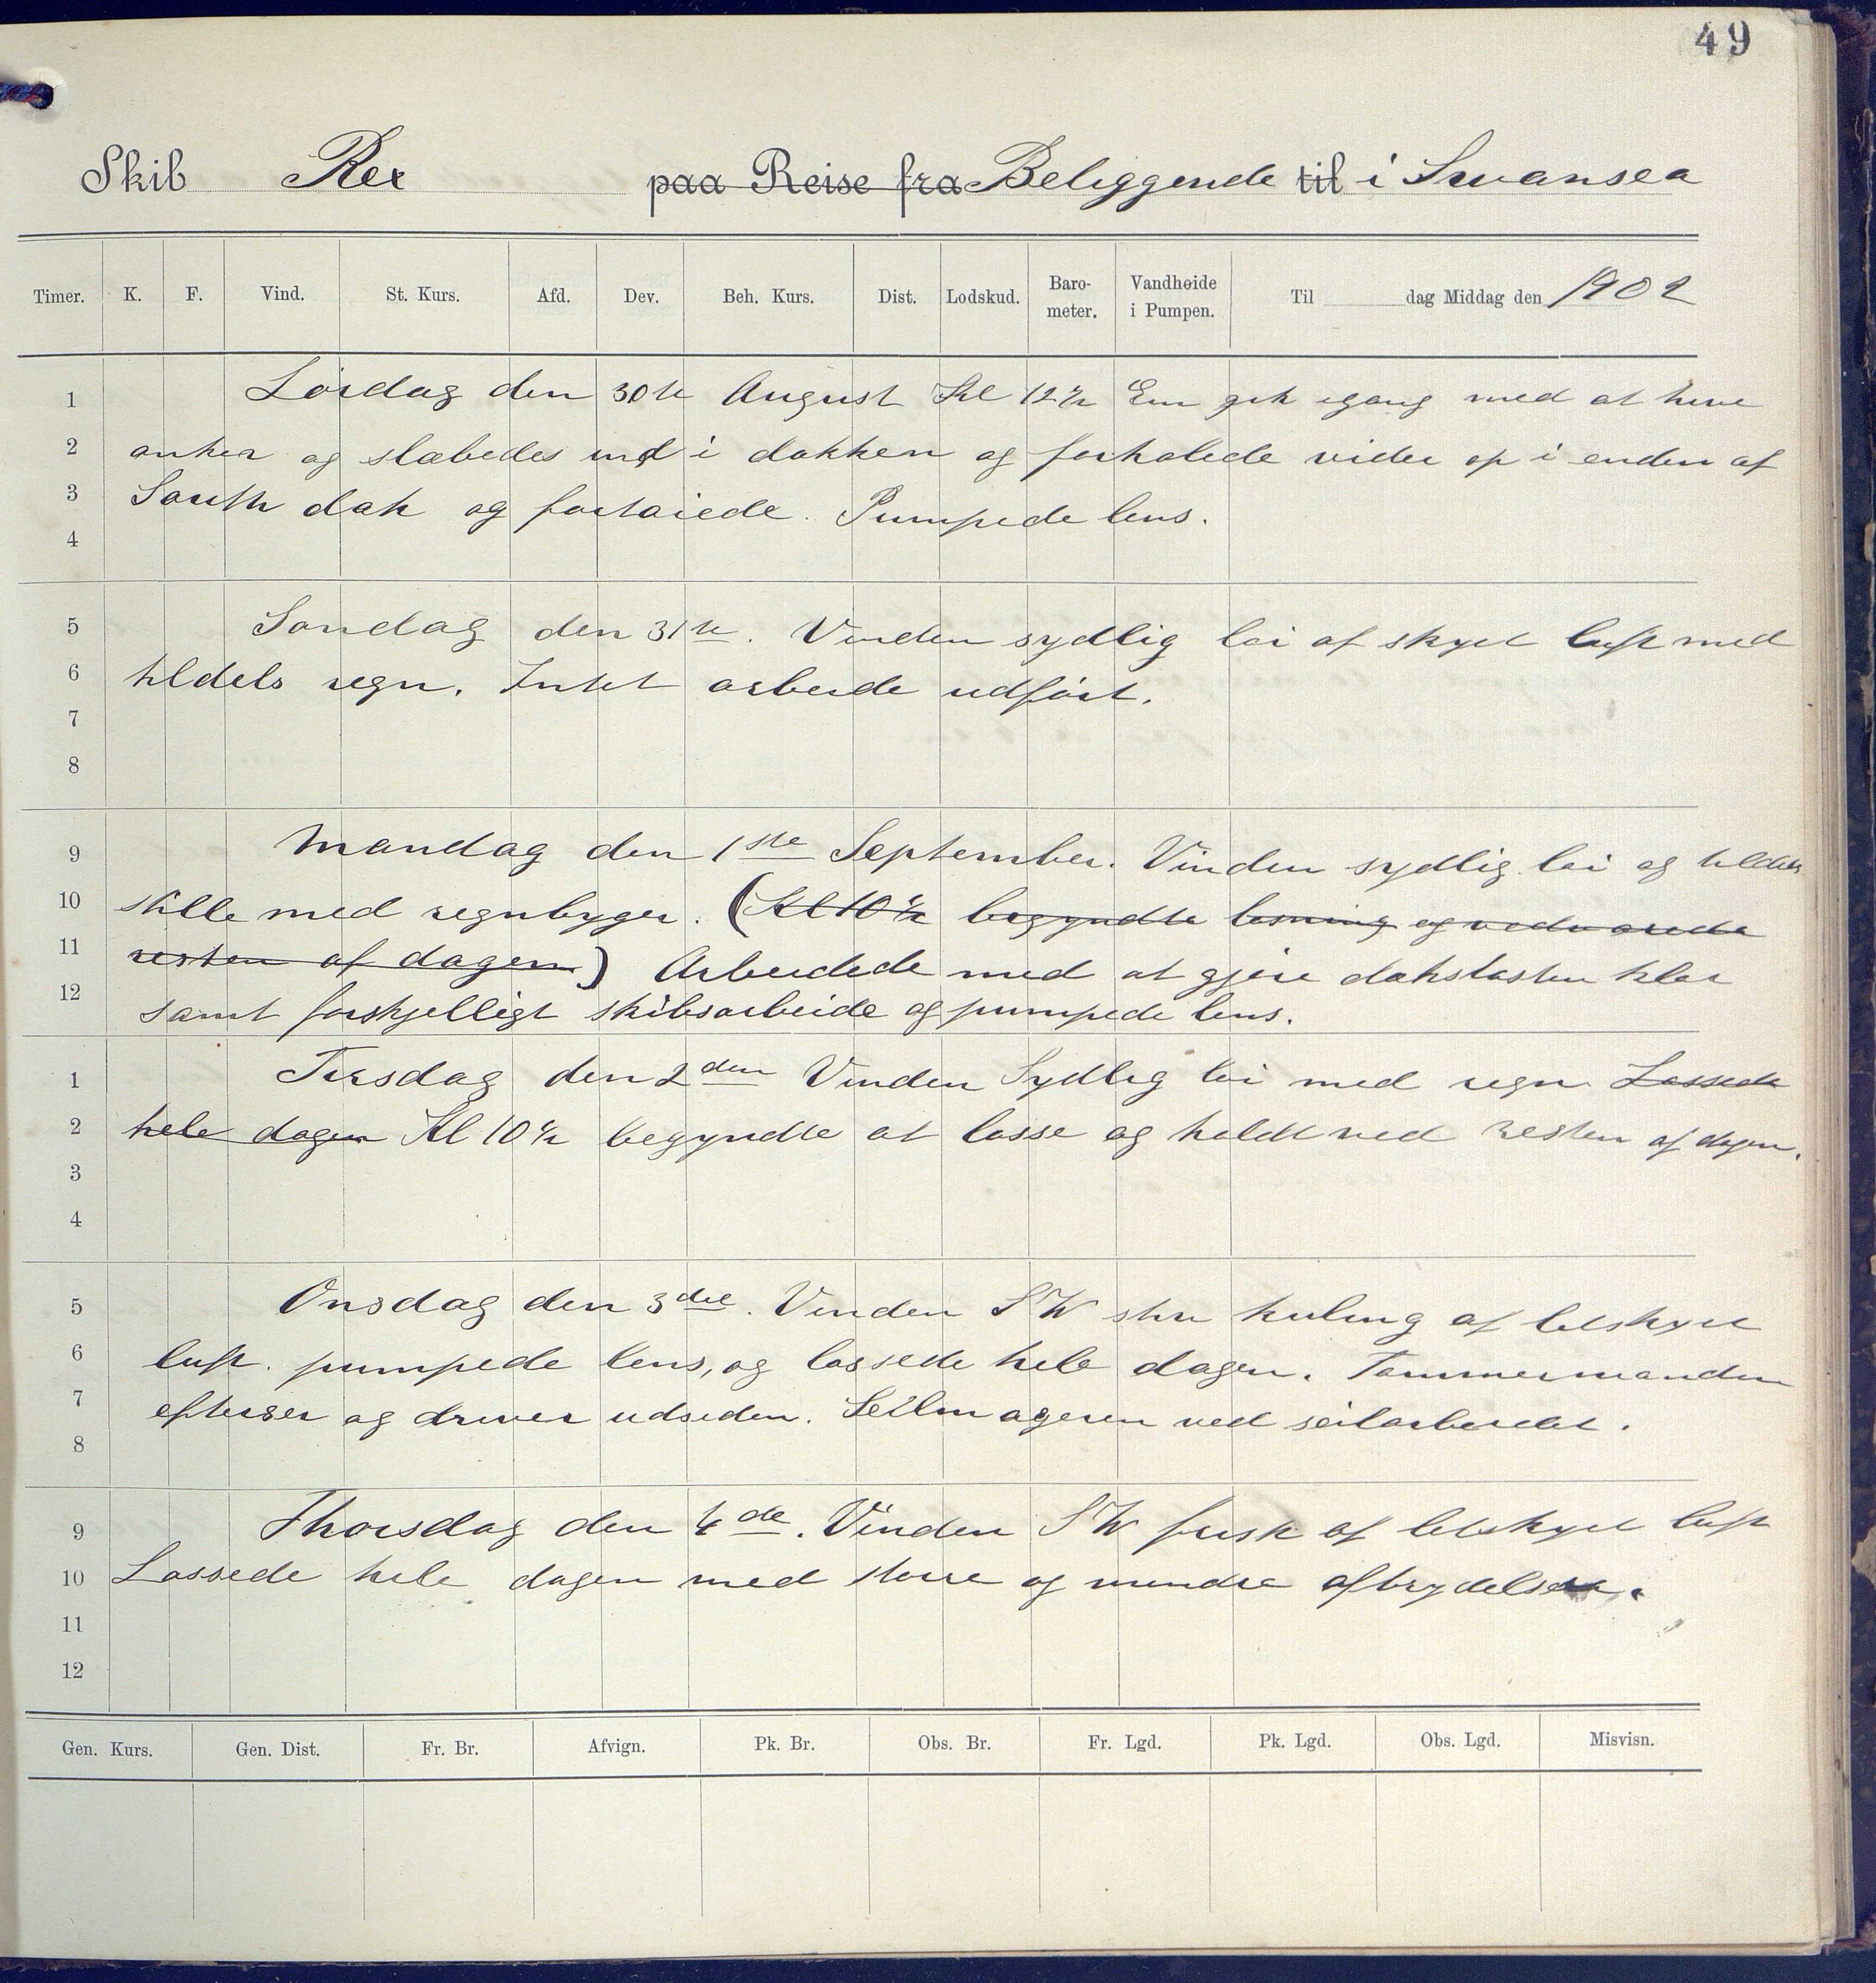 49
Skib Rex paa Reise fra Beliggende til i Swansea
Timer. K. F. Vind. St. Kurs. Afd. Dev. Beh. Kurs. Dist. Lodskud. Baro-meter. Vandhøide i Pumpen. Til dag Middag den 1902
1 Lørdag den 30te August Kl 12½ Em gik igang med at hive
2 anker og slæbedes ind i dokken og forhalede vider op i enden af
3 South dok og fortøiede. Pumpede lens.
4
5 Søndag den 31te. Vinden sydlig løi af skyet luft med
6 tildels regn. Intet arbeide udført.
7
8
9 Mandag den 1ste September. Vinden sydlig løi og tildels
10 stille med regnbyger. (Kl 10½ begyndte losning og vedvarede
11 resten af dagen) Arbeidede med at gjøre dækslasten klar
12 samt forskjelligt skibsarbeide og pumpede lens.
1 Tirsdag den 2den Vinden Sydlig løi med regn Lossede
2 hele dagen Kl 10½ begyndte at losse og holdt ved resten af dagen.
3
4
5 Onsdag den 3die. Vinden SW stiv kuling af letskyet
6 luft. pumpede lens, og lossede hele dagen. Tømmermanden
7 efterser og driver udsiden. Seilmageren ved seilarbeidet.
8
9 Thorsdag den 4de. Vinden SW frisk af letskyet luft
10 Lossede hele dagen med større og mindre afbrydelser.
11
12
Gen. Kurs. Gen. Dist. Fr. Br. Afvign. Pk. Br. Obs. Br. Fr. Lgd. Pk. Lgd. Obs. Lgd. Misvisn.